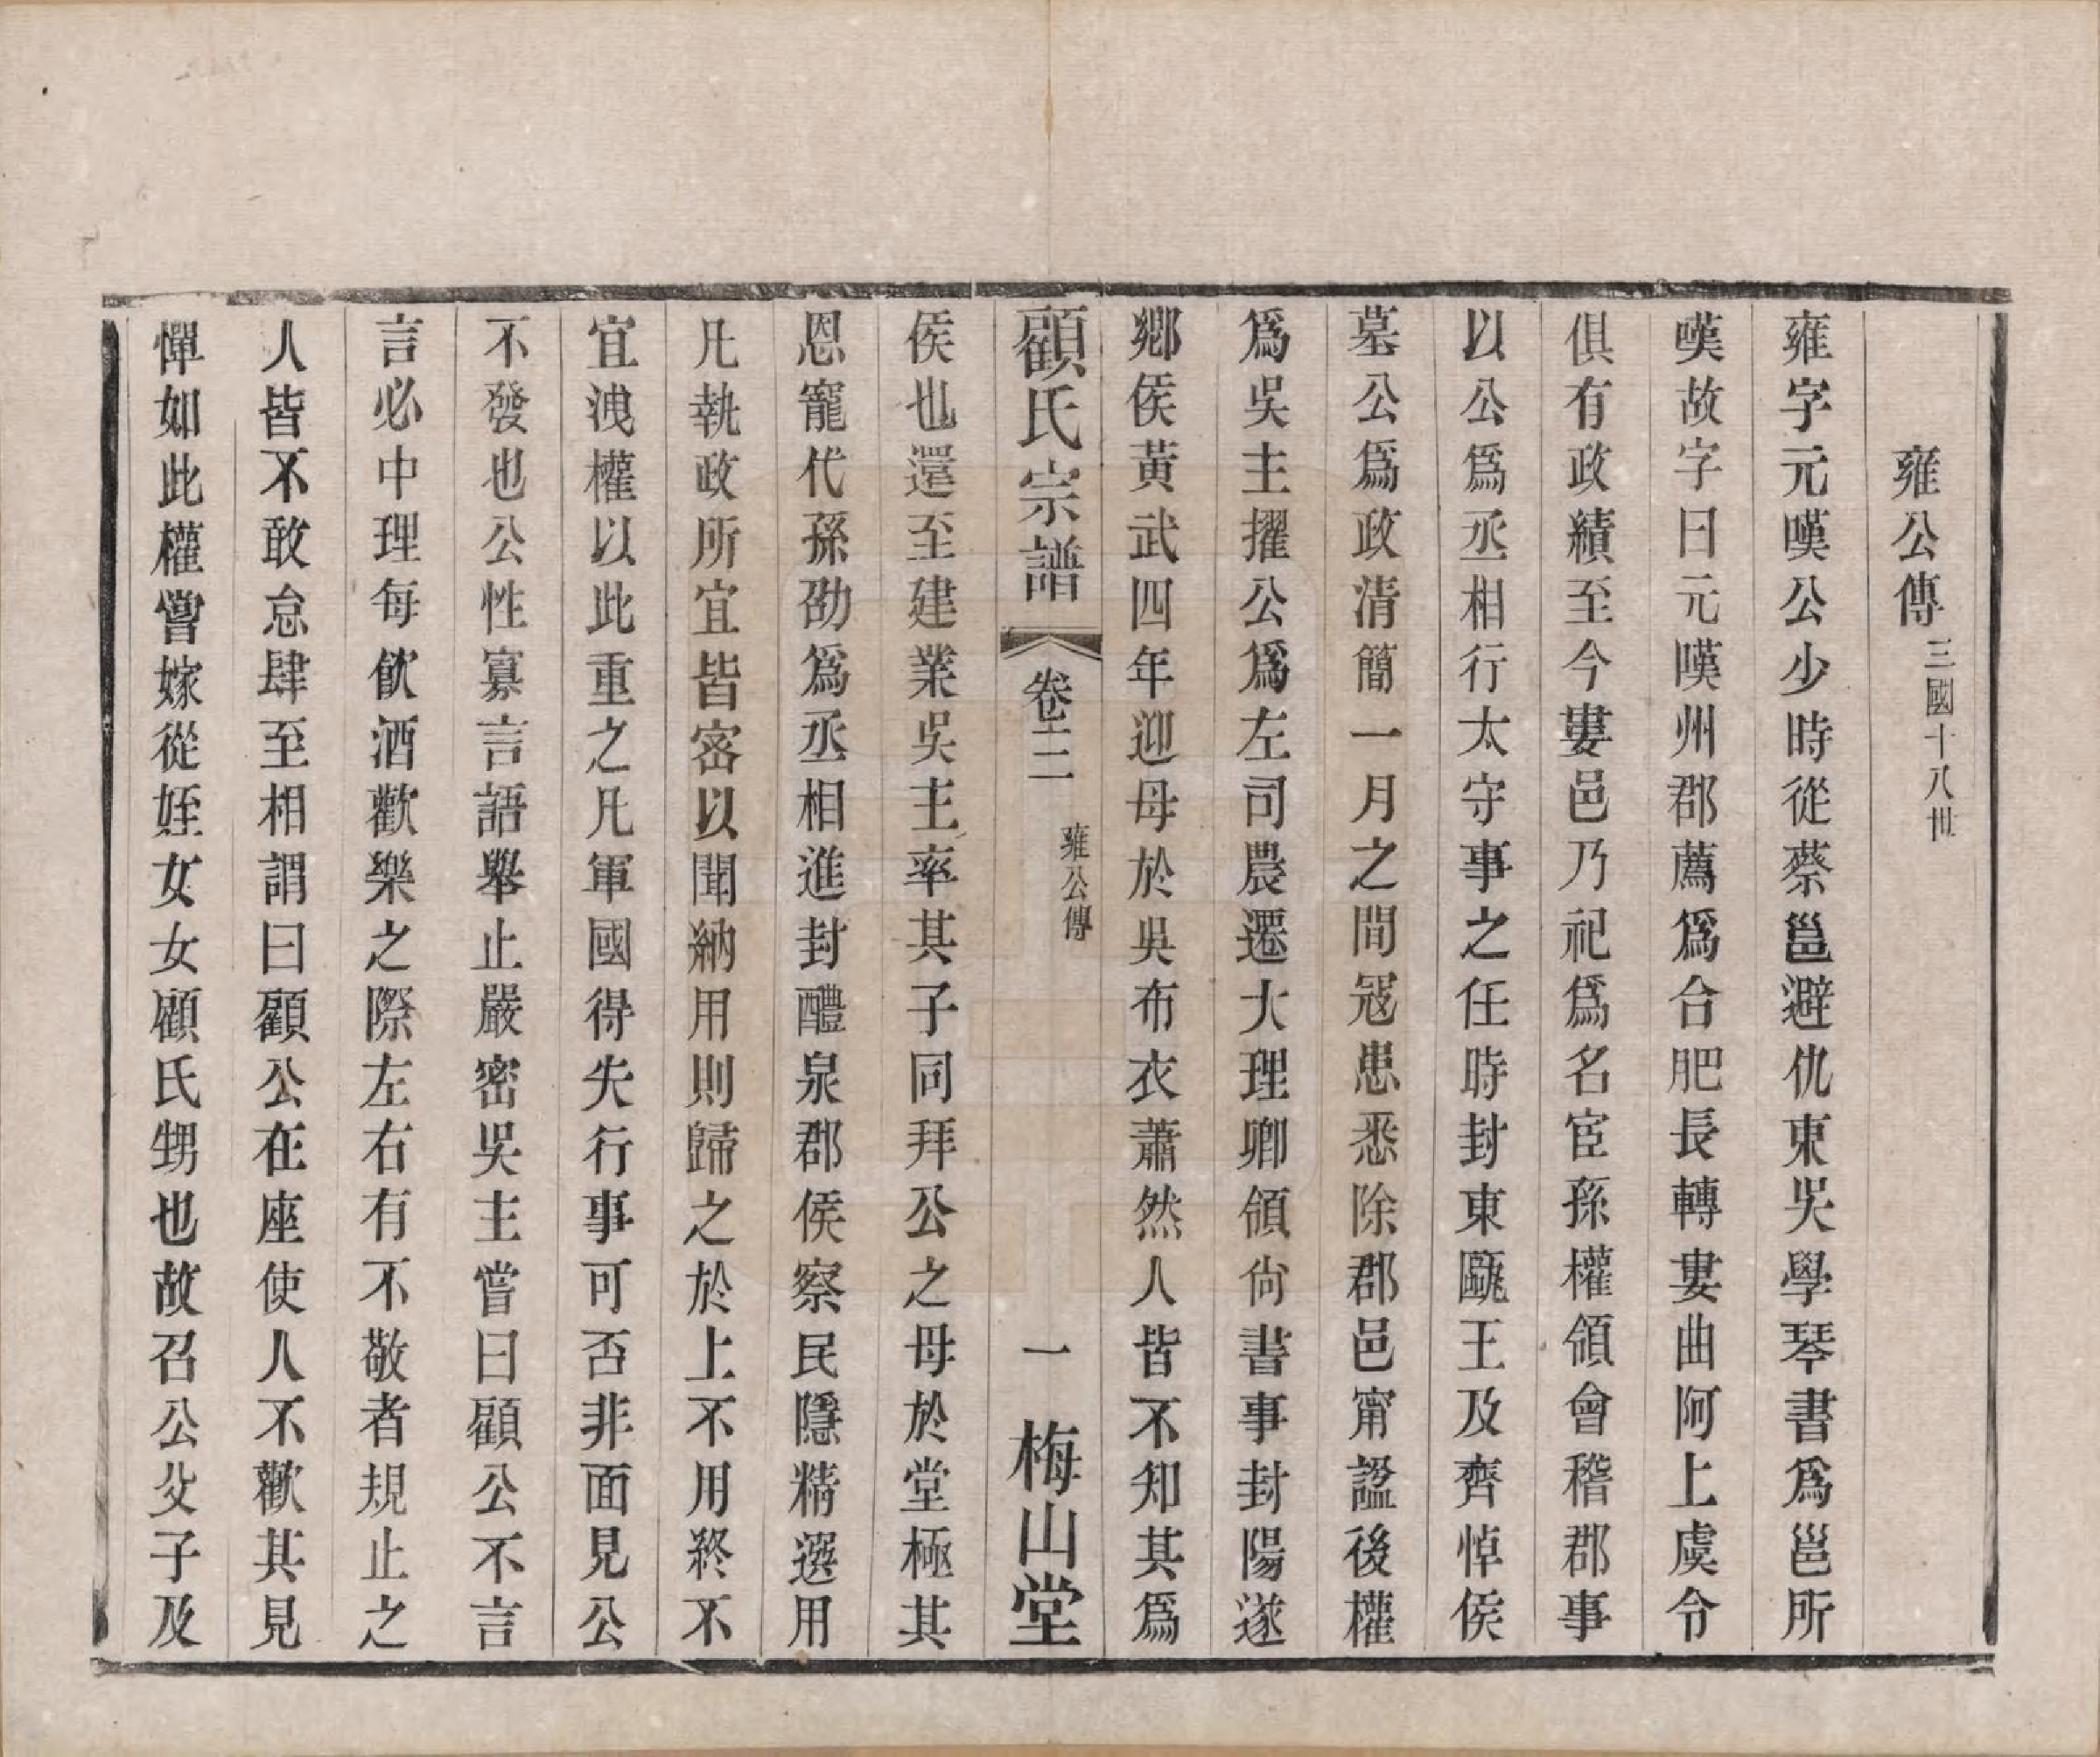 雍公傳三國十八世
雍字元嘆公少時從蔡邕避仇東吳學琴書爲邕所
嘆故字曰元嘆州郡薦爲合肥長轉婁曲阿上虞令
俱有政績至今婁邑乃祀爲名宦孫權領會稽郡事
以公爲丞相行太守事之任時封東甌王及齊悼侯
墓公爲政清簡一月之間冦患悉除郡邑甯謐後權
爲吳主擢公爲左司農遷大理卿領尙書事封陽遂
鄉侯黃武四年迎母於吳布衣蕭然人皆不知其爲
顧氏宗譜 卷二 雍公傳 一 梅山堂
侯也還至建業吳主率其子同拜公之母於堂極其
恩寵代孫劭爲丞相進封醴泉郡侯察民隱精選用
凡執政所宜皆密以聞納用則歸之於上不用終不
宜洩權以此重之凡軍國得失行事可否非面見公
不發也公性寡言語舉止嚴密吳主嘗曰顧公不言
言必中理每飲酒歡樂之際左右有不敬者規止之
人皆不敢怠肆至相謂曰顧公在座使人不歡其見
憚如此權嘗嫁從姪女女顧氏甥也故召公父子及